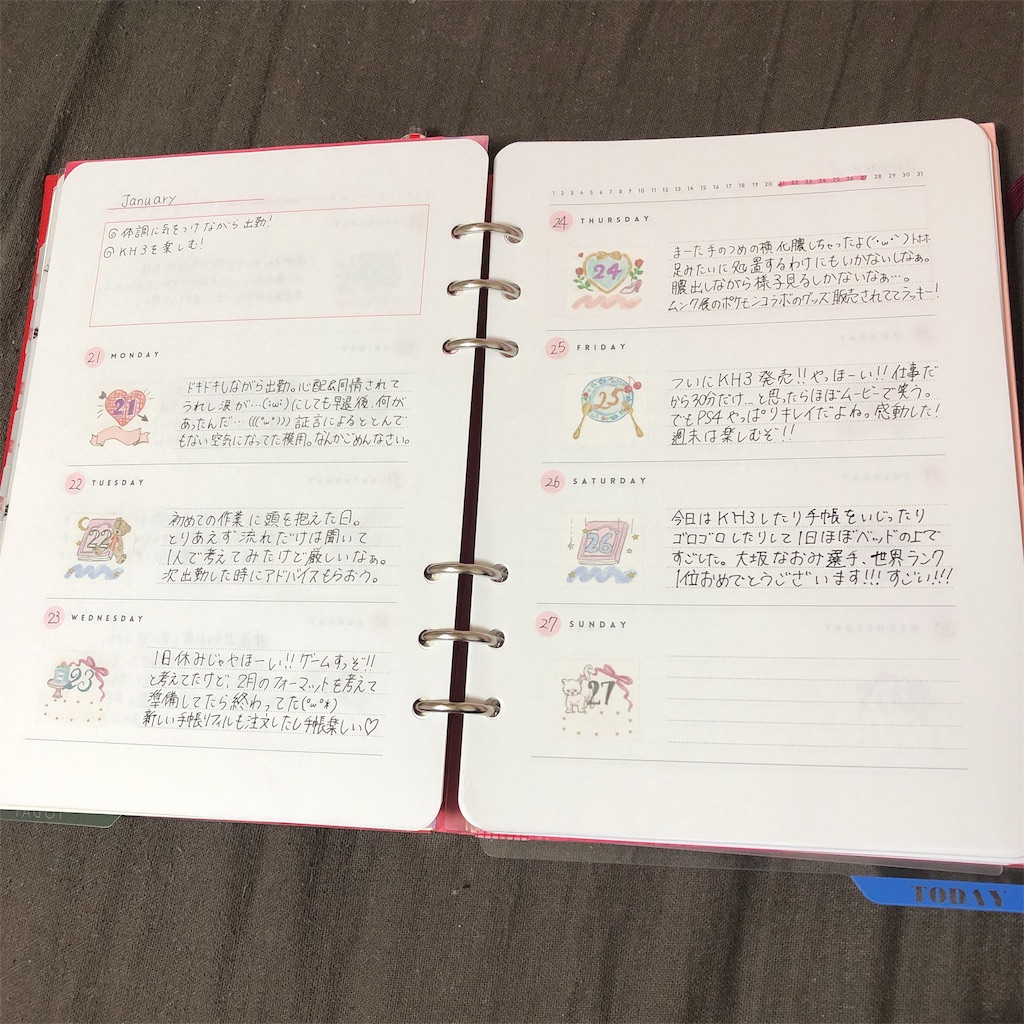 January
◎体調に気をつけながら出勤!
◎KH3を楽しむ!
21 MONDAY
21
ドキドキしながら出勤。心配&同情されて
うれし涙が…(;ω;)にしても早退後、何が
あったんだ…(((°ω°)))証言によるととんで
もない空気になってた模様。なんかごめんなさい。
22 TUESDAY
22
初めての作業に頭を抱えた日。
とりあえず流れだけは聞いて
1人で考えてみたけど厳しいなぁ。
次出勤した時にアドバイスもらおう。
23 WEDNESDAY
23
1日休みじゃやほーい!!ゲームすっぞ!!
と考えてたけど、2月のフォーマットを考えて
準備してたら終わってた(°ω°*)
新しい手帳リフィルも注文したし手帳楽しい♡
1 2 3 4 5 6 7 8 9 10 11 12 13 14 15 16 17 18 19 20 21 22 23 24 25 26 27 28 29 30 31
24 THURSDAY
24
まーた手のつめの横化膿しちゃったよ(´・ω・`)トホホ
足みたいに処置するわけにもいかないしなぁ。
膿出しながら様子見るしかないなぁ…。
ムンク展のポケモンコラボのグッズ販売されててラッキー!
25 FRIDAY
25
ついにKH3発売!!やっほーい!!仕事だ
から30分だけ…と思ったらほぼムービーで笑う。
でもPS4やっぱりキレイだよね。感動した!
週末は楽しむぞ!!
26 SATURDAY
26
今日はKH3したり手帳をいじったり
ゴロゴロしたりして1日ほぼベッドの上で
すごした。大坂なおみ選手、世界ランク
1位おめでとうございます!!!すごい!!!
27 SUNDAY
27
TODAY